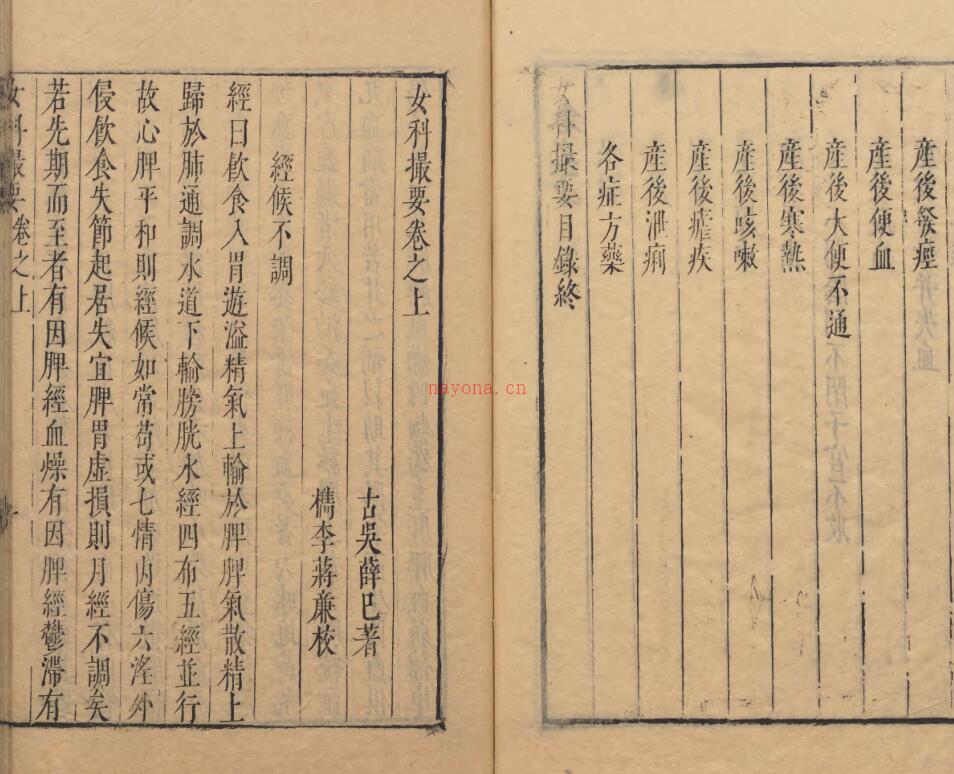 產後發痙
產後便血
產後大便不通
產後寒熱
產後咳嗽
產後瘧疾
產後泄痢
各症方藥
女科撮要目錄終
女科撮要卷之上
古吳薛己著
檇李蔣㢘校
經候不調
經曰飲食入胃遊溢精氣上輸於脾脾氣散精上
歸於肺通調水道下輸膀胱水經四布五經並行
故心脾平和則經候如常苟或七情內傷六淫外
侵飲食失節起居失宜脾胃虛損則月經不調矣
若先期而至者有因脾經血燥有因脾經鬱滯有
女科撮要卷之上
nayona.cn